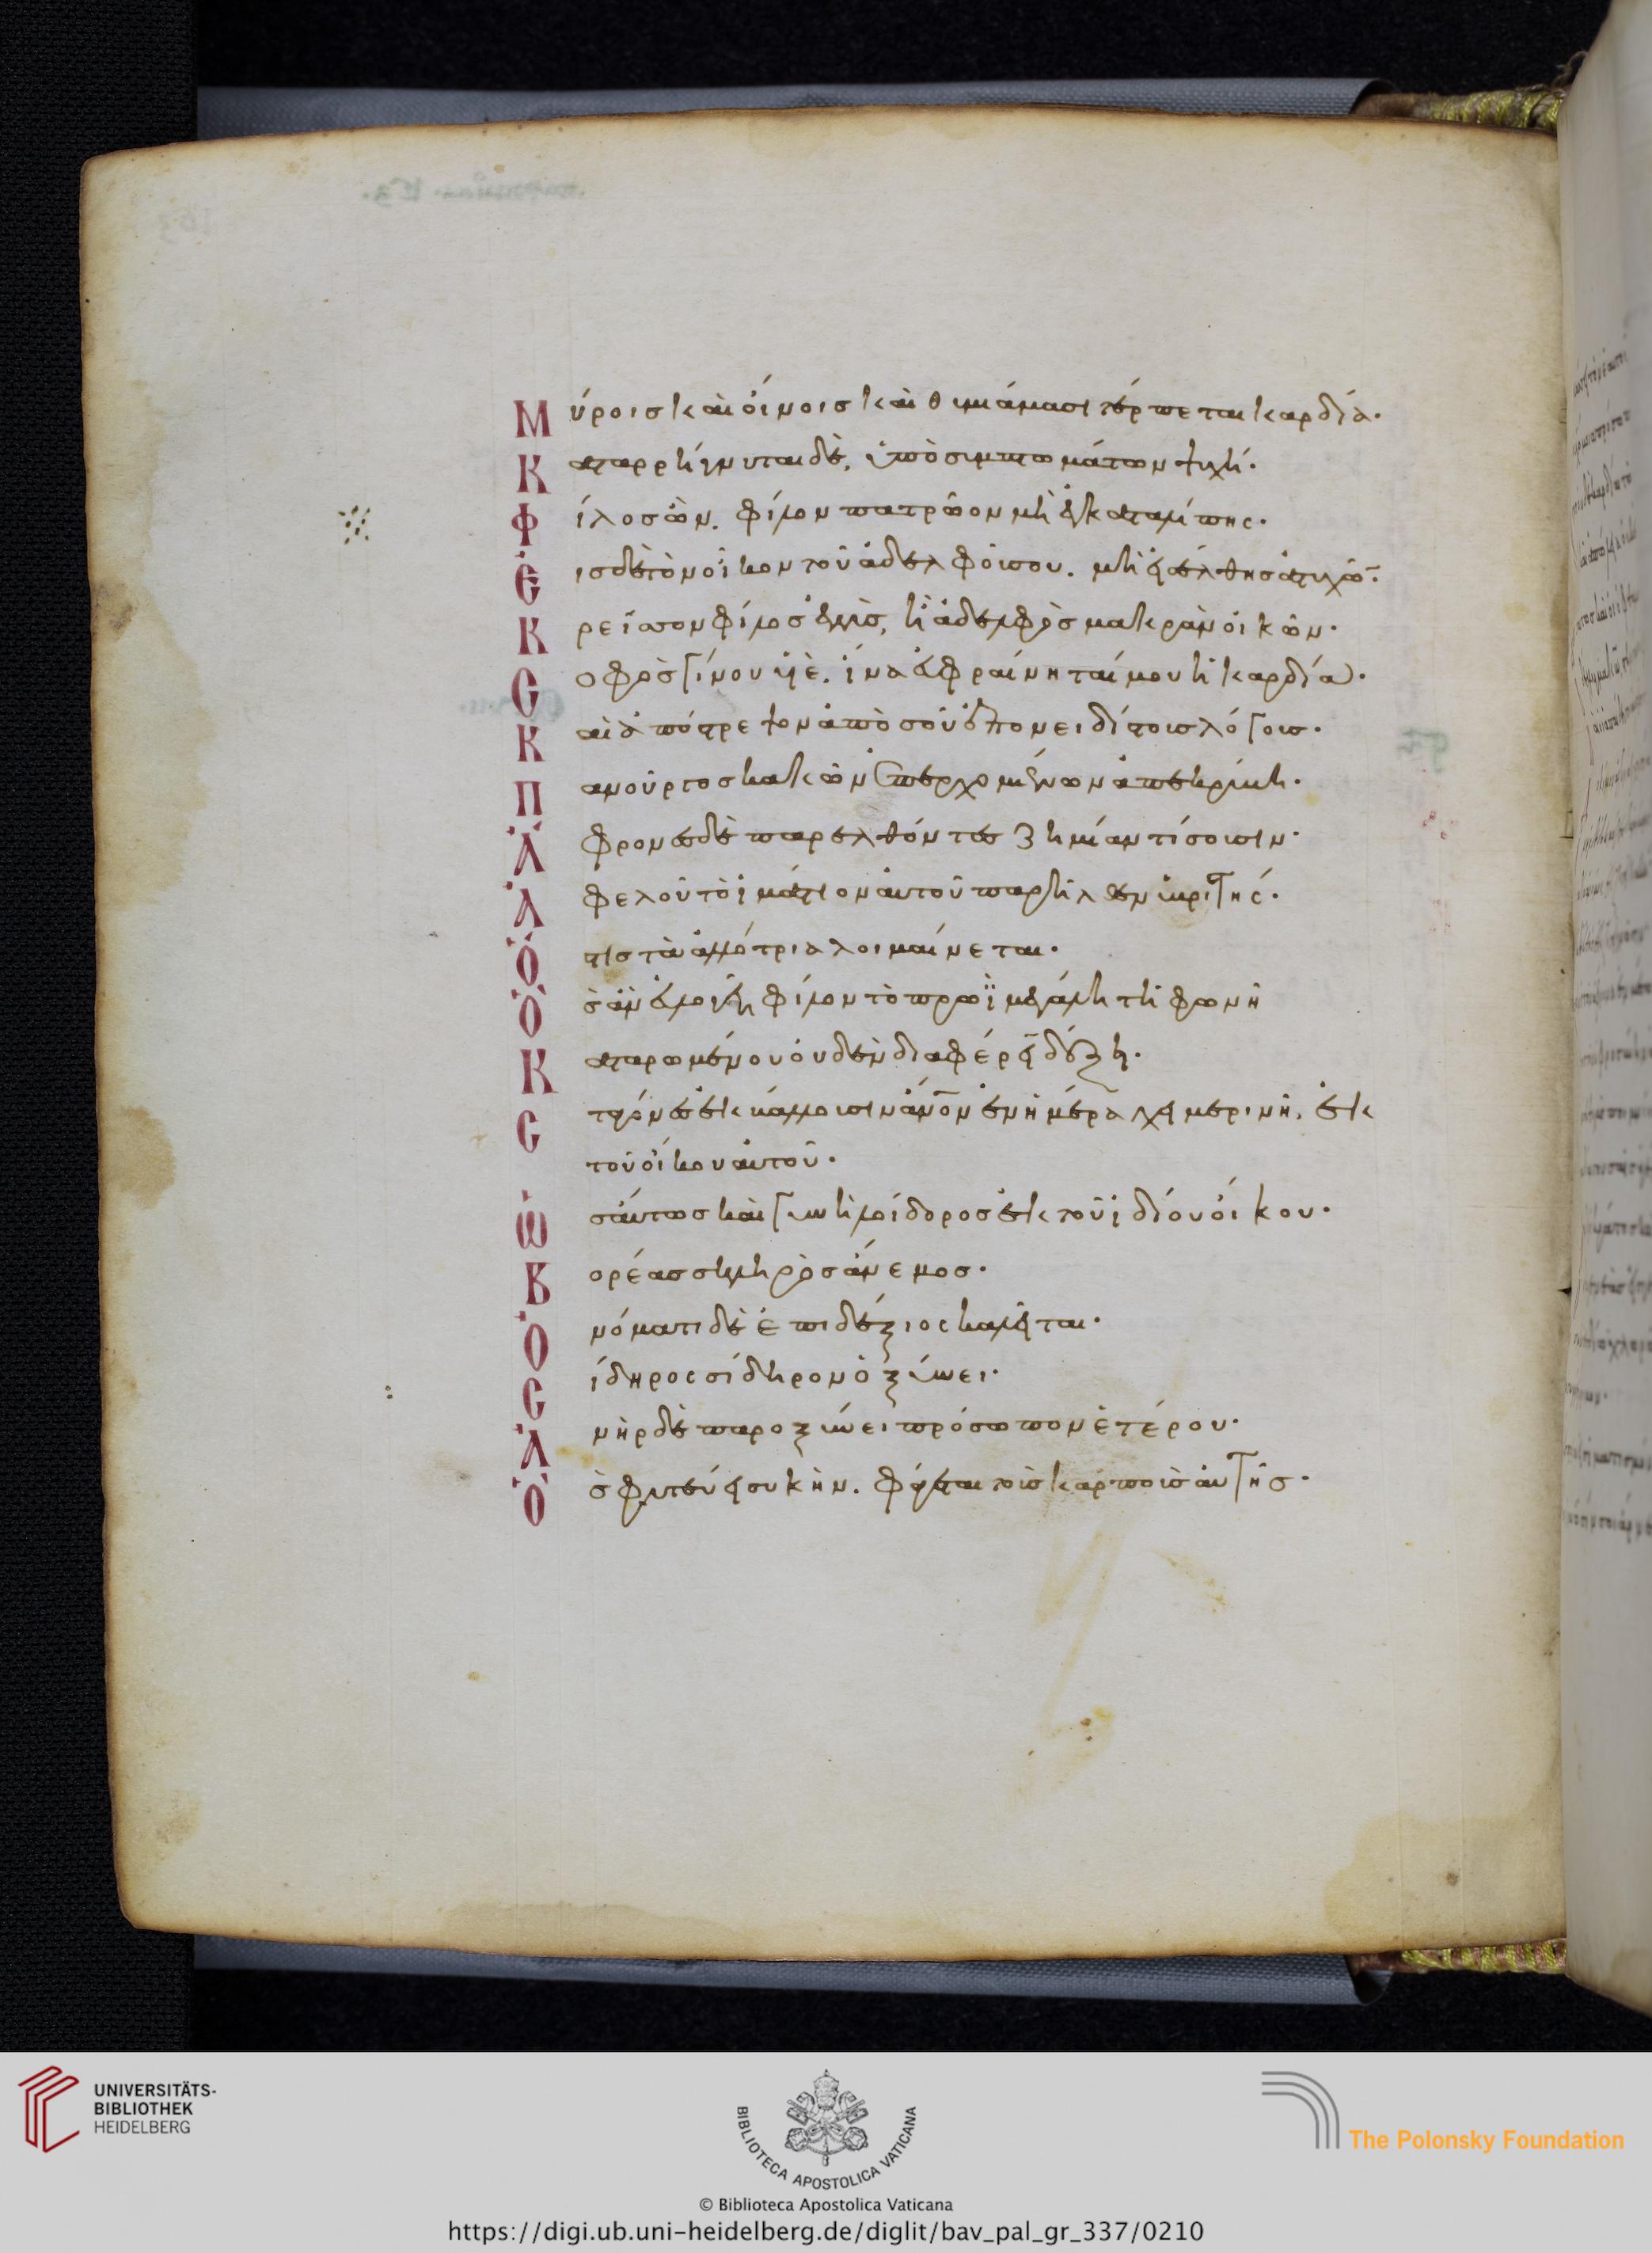 Μύροις καὶ οἴνοις καὶ θυμιάμασι τέρπεται καρδία·
Καταρρήγνυται δὲ, ὑπὸ συμπτωμάτων ψυχή·
Φίλον σὸν. φίλον πατρῶον μὴ ἐγκαταλίπῃς·
Εἰς δὲ τὸν οἶκον τοῦ ἀδελφοῦ σου. μὴ εἰσέλθῃς ἀτυχῶν·
Κρείσσον φίλος ἐγγὺς, ἢ ἀδελφὸς μακρὰν οἰκῶν·
Σοφὸς γίνου υἱὲ. ἵνα εὐφραίνηταί μου ἡ καρδία·
Καὶ ἀπότρεψον ἀπὸ σοῦ ἐπονειδίστους λόγους·
Πανοῦργος κακῶν ἐπερχομένων ἀπεκρύβη·
Ἄφρονες δὲ παρελθόντες ζημίαν τίσουσιν·
Ἀφελοῦ τὸ ἱμάτιον αὐτοῦ παρῆλθεν ὑβριστής·
Ὅστις τὰ ἀλλότρια λυμαίνεται·
Ὃς ἂν εὐλογῇ φίλον τὸ πρωῒ μεγάλη τῇ φωνῇ
Καταρωμένου οὐδὲν διαφέρειν δόξῃ·
Σταγόνες ἐκβάλλουσιν ἄνον ἐν ἡμέρα χειμερινῆ, ἐκ
τοῦ οἴκου αὐτοῦ·
Ὡσαύτως καὶ γυνὴ λοίδορος ἐκ τοῦ ἰδίου οἴκου·
Βορέας σκληρὸς ἄνεμος·
Ὀνόματι δὲ ἐπιδέξιος καλεῖται·
Σίδηρος σίδηρον ὀξύνει·
Ἀνὴρ δὲ παροξύνει πρόσωπον ἑτέρου·
Ὃς φυτεύει συκὴν. φάγεται τοὺς καρποὺς αὐτῆς·
UNIVERSITÄTS-
BIBLIOTHEK
HEIDELBERG
BIBLIOTECA APOSTOLICA VATICANA
The Polonsky Foundation
© Biblioteca Apostolica Vaticana
https://digi.ub.uni-heidelberg.de/diglit/bav_pal_gr_337/0210